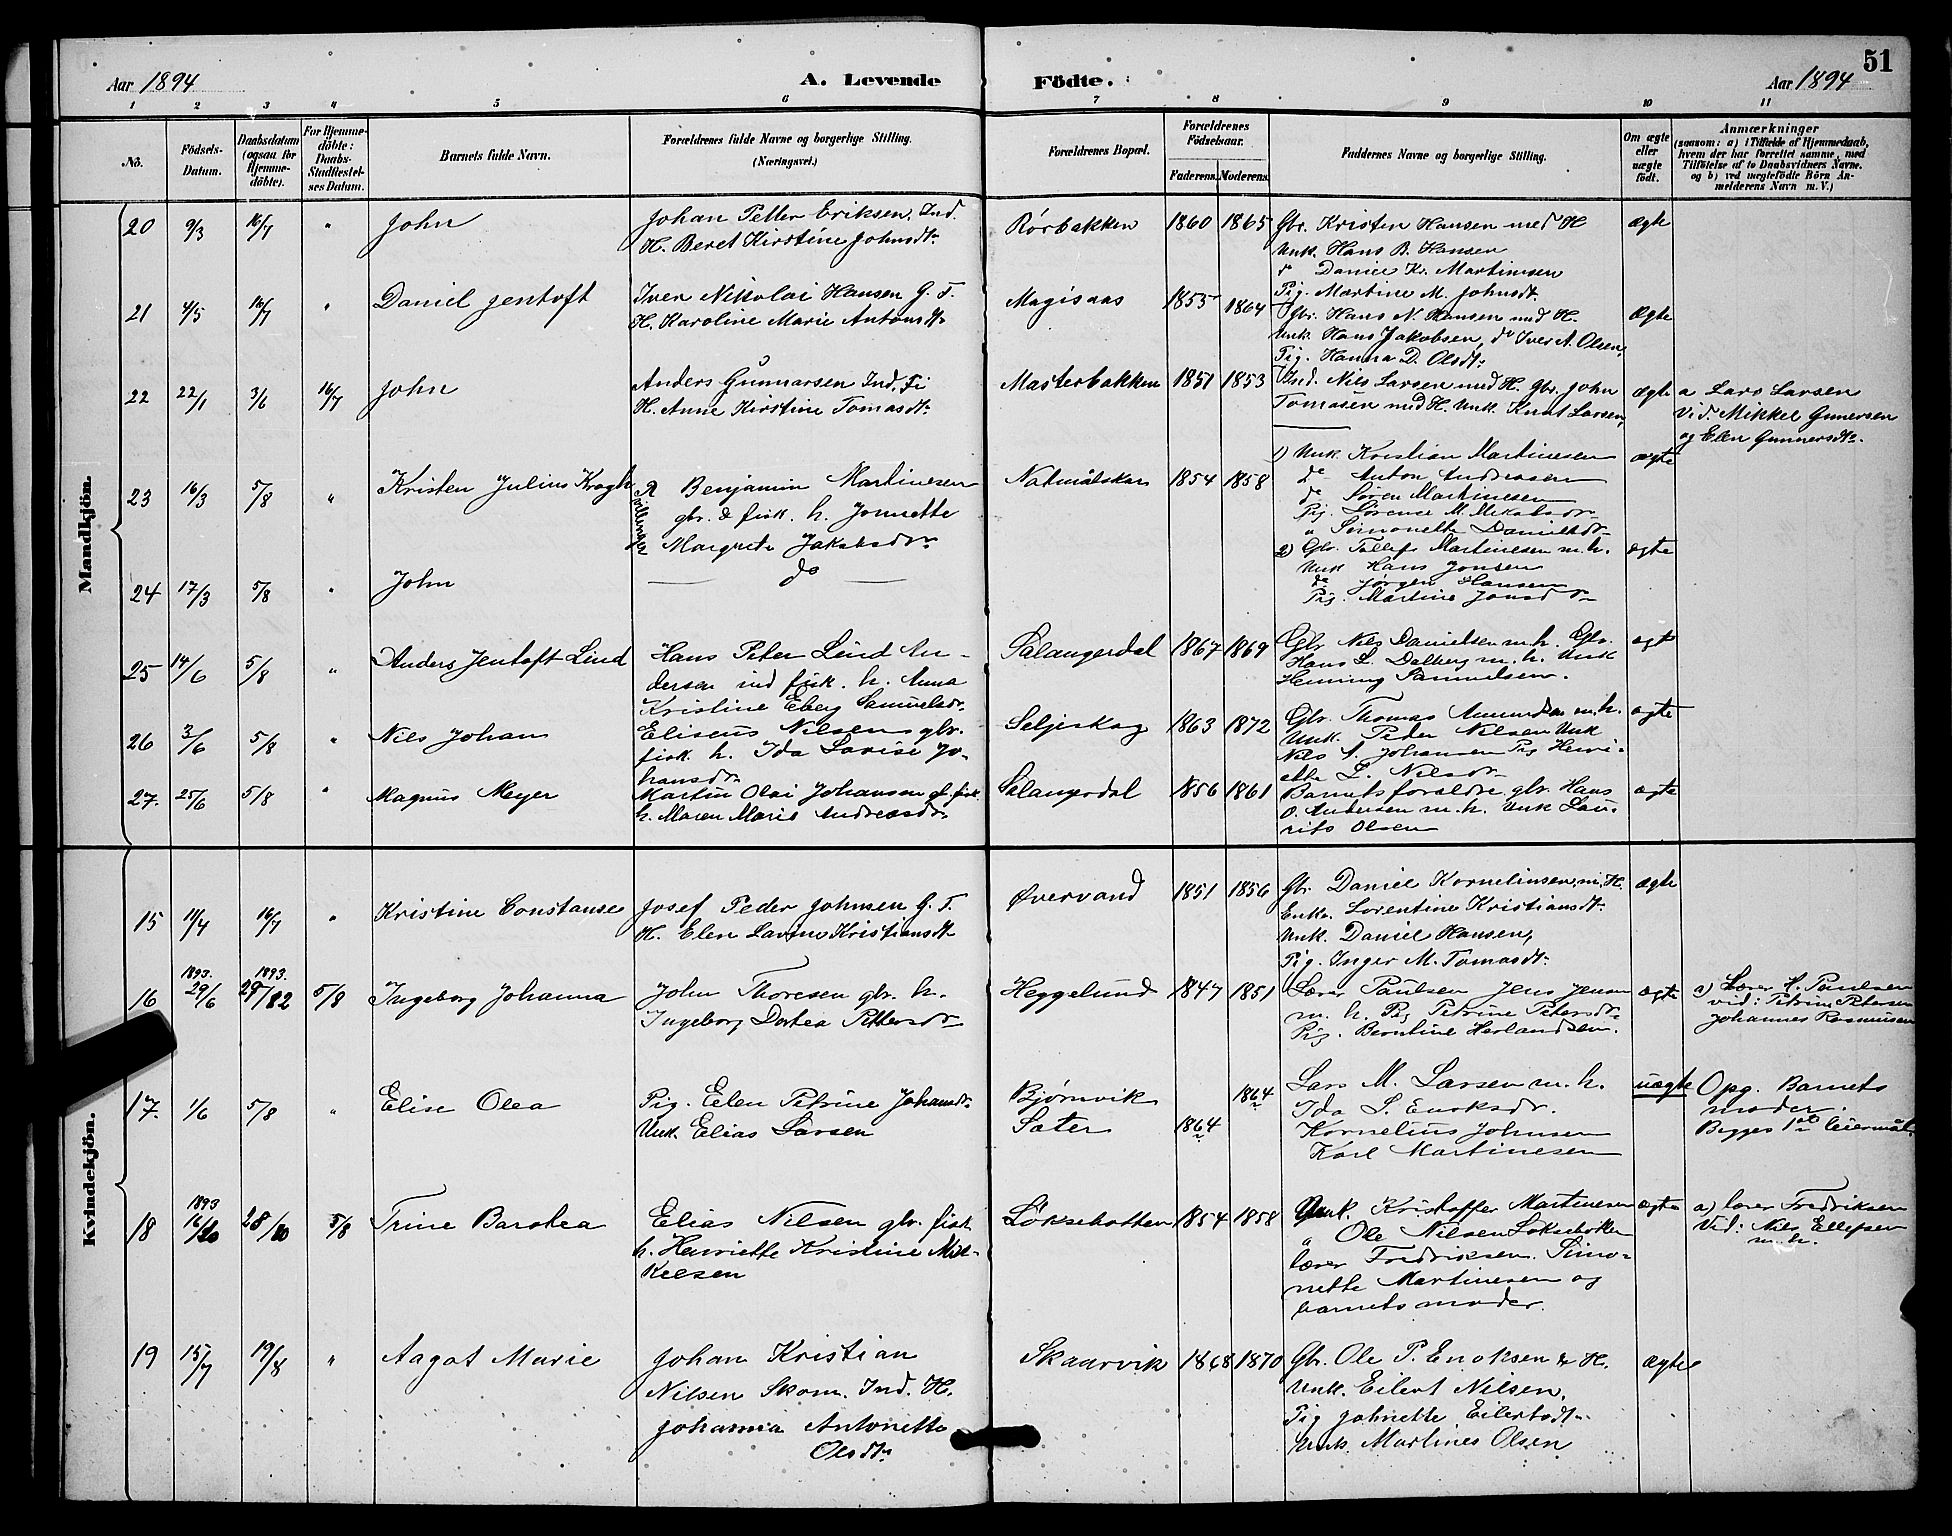 51
Aar 1894 A. Levende Födte. Aar 1894
1 2 3 4 5 6 7 8 9 10 11
No. Födsels-Datum. Daabsdatum (ogsaa for Hjemme-döbte). For Hjemme-döbte: Daabs-Stadfæstel-ses Datum. Barnets fulde Navn. Forældrenes fulde Navne og borgerlige Stilling. (Næringsvei.) Forældrenes Bopæl. Forældrenes Födselsaar. Faderens. Moderens. Faddernes Navne og borgerlige Stilling. Om ægte eller uægte födt. Anmærkninger (saasom: a) i Tilfælde af Hjemmedaab, hvem der har forrettet samme, med Tilföielse af to Daabsvidners Navne, og b) ved uægtefödte Börn An-melderens Navn m. V.)
Mandkjön.
20 9/3 16/7 " John Johan Petter Eriksen, Ind. Rörbakken 1860 1865 Gbr. Kristen Hansen med H ægte
H. Beret Kirstine Johnsdt. Unk. Hans B. Hansen
d Daniel Kr. Martinsen
Pig. Martine M. Johnsdt.
21 4/5 16/7 " Daniel Jentoft Iver Nikolai Hansen G. F. Magisaas 1855 1864 Gbr. Hans N. Hansen med H. ægte
H. Karoline Marie Antonsdt. Unk. Hans Jakobsen, do Iver A. Olsen,
Pig. Hanna D. Olsdt.
22 22/1 3/6 16/7 John Anders Gunnarsen Ind. Fi Masterbakken 1851 1853 Ind. Nils Larsen med H. Gbr. John ægte a Lars Larsen
H. Anne Kirstine Tomasdt. Tomasen med H. Unk. Knut Larsen, Vid. Mikkel Gunersen
og Elen Gunnersdt.
23 16/3 5/8 " Kristen Julius Krogh Tvillinger Benjamin Martinesen Natmålskar 1854 1858 1) Unk Kristian Martinesen ægte
gbr. & fisk. h. Jonnette do Anton Andreasen
Margrete Jakobsdr. do Søren Martinesen
Pig. Lorence M.
" Simonette Danielsdr.
24 17/3 5/8 " John do 2) Gbr. Tollefs Martinesen m. h. ægte
Unk Hans Jonsen
do Jørgen Hansen
Pig. Martine Jonsdr.
25 14/6 5/8 " Anders Jentoft Lind Hans Peter Lind An- Salangerdal 1867 1869 Gbr Nils Danielsen m. h. Gbr. ægte
dersen ind fisk. h. Anna Hans L. Dalberg m. h. Unk
Kristine Eberg Samuelsdr. Henning Samuelsen.
26 3/6 5/8 " Nils Johan Eliseus Nilsen gbr. Seljeskog 1863 1872 Gbr. Thomas Amundsen m. h. ægte
fisk. h. Ida Lovise Jo- Unk. Peder Nilsen Unk
hansdr. Nils A. Johansen Pig Henri-
ette L. Nilsdr.
27. 25/6 5/8 " Magnus Meyer Martin Olai Johansen gb. fisk. Salangerdal 1856 1861 Barnets forældre, gbr. Hans ægte
h. Maren Marie Andreasdr. O. Andersen m. h. Unk Lau-
rits Olsen
Kvindekjön.
15 11/4 16/7 " Kristine Constanse Josef Peder Johnsen G. F. Øvervand 1851 1856 Gbr. Daniel Kornelinsen, m. H. ægte
H. Elen Lavine Kristiansdt. Enke. Lorentine Kristiansdt.
Unk. Daniel Hansen,
Pig. Inger M. Tomasdt.
16 1893. 29/6 1893. 5/8 Ingeborg Johanna John Thoresen gbr. h. Heggelund 1847 1851 Lærer Paulsen Jens Jensen ægte a) Lærer H. Paulsen
Ingeborg Dortea Pettersdr. m. h. Pig Petrine Petersdr. vid: Petrine Petersen
Pig. Berntine Herlandsen. Johannes Rasmusen
17. 1/6 5/8 " Elise Olea Pig. Elen Petrine Johansdr. Bjørnvik 1864 Lars M. Larsen m. h. uægte Opg. Barnets
Unk. Elias Larsen Sæter 1864 Ida S. Enoksdr. moder.
Kornelius Johnsen Begges 1ste leiermål.
Karl Martinesen
18 1893 16/10 28/10 5/8 Trine Barolea Elias Nilsen gbr. fisk Löksebotten 1854 1858 Unk. Kristoffer Martinesen ægte a) lærer Fredriksen
h. Henriette Kristine Mik- " Ole Nilsen Løksebotten Vid: Nils Ellefsen
kelsen lærer Fredriksen. Simo- m. h.
nette Martinesen og
barnets moder.
19 15/7 19/8 " Aagot Marie Johan Kristian Skaarvik 1868 1870 Gbr. Ole P. Enoksen & H. ægte
Nilsen Skom. Ind. H. Unk. Eilert Nilsen,
Johanna Antonette Pig Johnette Eilertsdt.
Olsdt. Unk. Martines Olsen